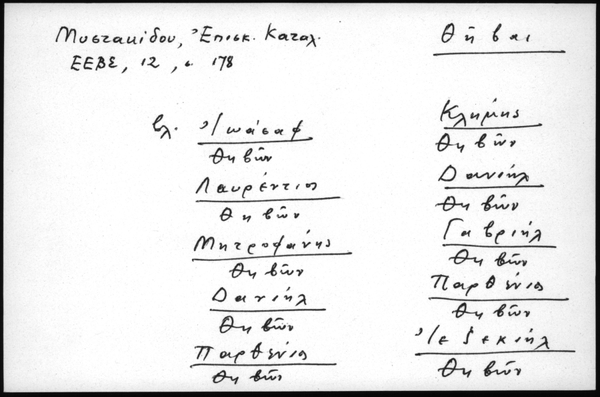 Μυστακίδου, Ἐπισκ. Καταλ.
ΕΕΒΣ, 12, σ. 178
Θῆβαι
βλ. Ἰωάσαφ
Θηβῶν
Λαυρέντιος
Θηβῶν
Μητροφάνης
Θηβῶν
Δανιήλ
Θηβῶν
Παρθένιος
Θηβῶν
Κλήμης
Θηβῶν
Δανιήλ
Θηβῶν
Γαβριήλ
Θηβῶν
Παρθένιος
Θηβῶν
Ἰεζεκιήλ
Θηβῶν